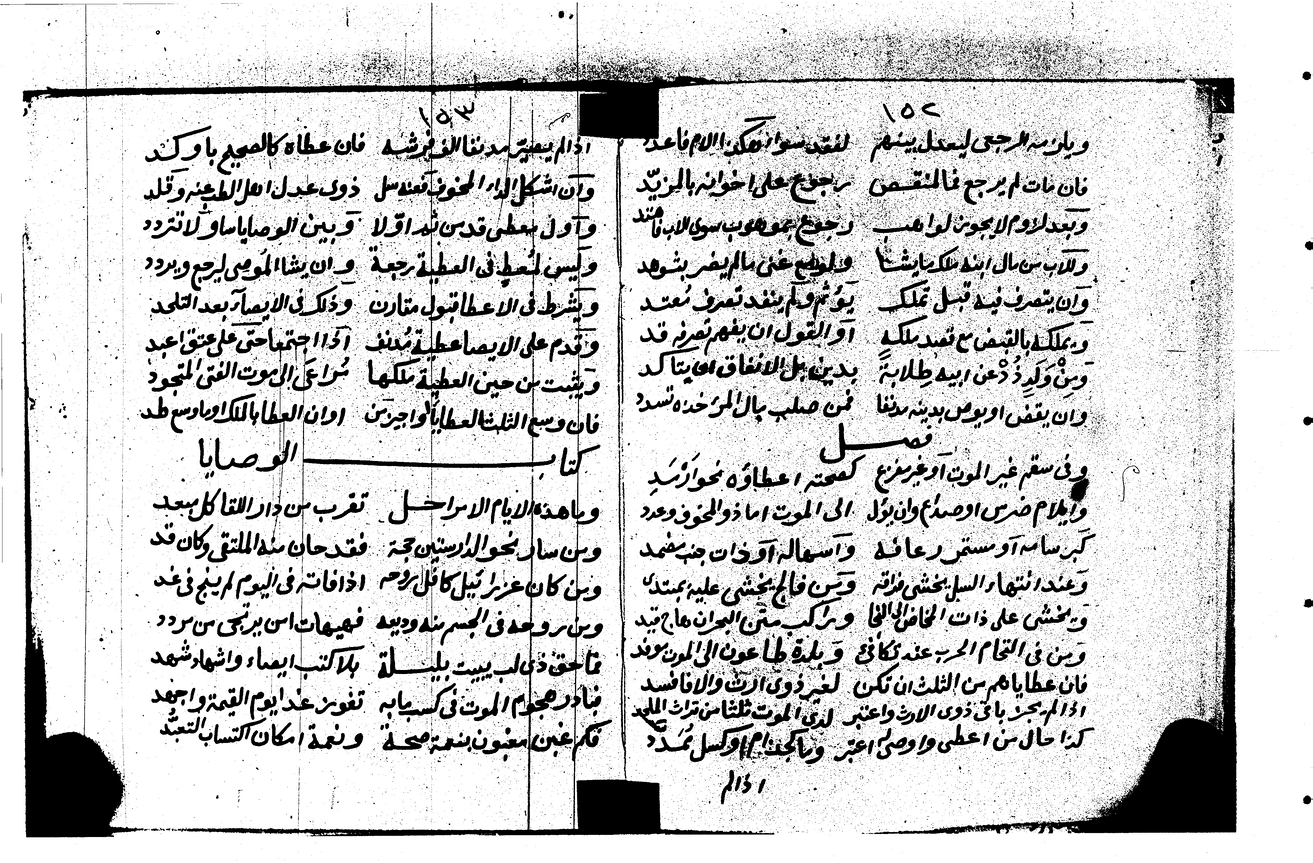 ١٥٢
ويلزمه الرجعى ليعدل بينهم لفقد سوا هكذا الام فاعدد
فان مات لم يرجع فما لمنقص رجوع على اخوانه بالمزيد
وبعد لزوم لا يجوز لواهب رجوع بموهوب سوى الاب فاهتد
وللاب من مال ابنه ملك ما يشا ولو مع غنى ما لم يضر بشوهد
وان يتصرف فيه قبل تملك يؤثم ولم ينفذ تصرف معتد
ويملكه بالقبض مع قصد ملكه او القول ان يفهم تصرفه قد
ومن ولد ذد عن ابيه طلابة بدين بل الانفاق ان يتاكد
وان يقض او يوص بدينه مدنفا فمن صلب مال المرء خذه تسدد
فصل
وفي سقم غير الموت او غير مفزع كصحته اعطاؤه نحو ارشد
وايلام ضرس او صداع وان يؤل الى الموت اما ذو المخوف وعدد
كبرسامه او مستمر رعافه واسهاله او ذات جنب
وعند انتهاء السل يخشى فراقه ومن فالج يخشى عليه بمبتدى
ويخشى على ذات المخاض وراكب متن البحران هاج قيد
ومن في التحام الحرب عند تكافئ وبلدة طاعون الى الموت
فان عطاياهم من الثلث ان تكن لغير ذوى الارث والا فافسد
اذا لم يجز باقي ذوى الارث واعتبر لدى الموت ثلثا من تراث الملحد
كذا حال من اعطى واوصى له اعتبر وما كجذام او كسل ممدد
اذا لم
١٥٣
اذا لم يصير مدنفا الف فرشه فان عطاه كالصحيح باوكد
وان اشكل الداء المخوف فعنه سل ذوى عدل اهل الطب عنه وقلد
واول معطى قدمن ثم اولا وبين الوصايا ساو لا تتردد
وليس لمعط في العطية رجعة وان يشا الموصى ليرجع ويردد
ويشرط في الاعطا قبول مقارن وذلك في الايصاء بعد التلحد
وقدم على الايصا عطية مدنف اذا اجتمعا حتى على عتق اعبد
ويثبت من حين العطية ملكها مراعى الى موت الفتى المتجود
فان وسع الثلث العطايا واجيزمن اوان العطا بالملك او ما وسع طد
كتاب الوصايا
وما هذه الايام الا مراحل تقرب من دار اللقا كل مبعد
ومن سار نحو الدار ستين حجة فقد حان منه الملتقى وكان قد
ومن كان عزرائيل كافل روحه اذا فاته في اليوم لم ينج في غد
ومن روحه في الجسم منه وديعة فهيهات امن يرتجى من مردد
فما حق ذي لب يبيت بليلة بلا كتب ايصاء واشهاد شهد
فبادر هجوم الموت في كسب ما به تفوز غدا يوم القيمة واجهد
فكم غبن مغبون بنعمة صحة ونعمة امكان اكتساب التعبد